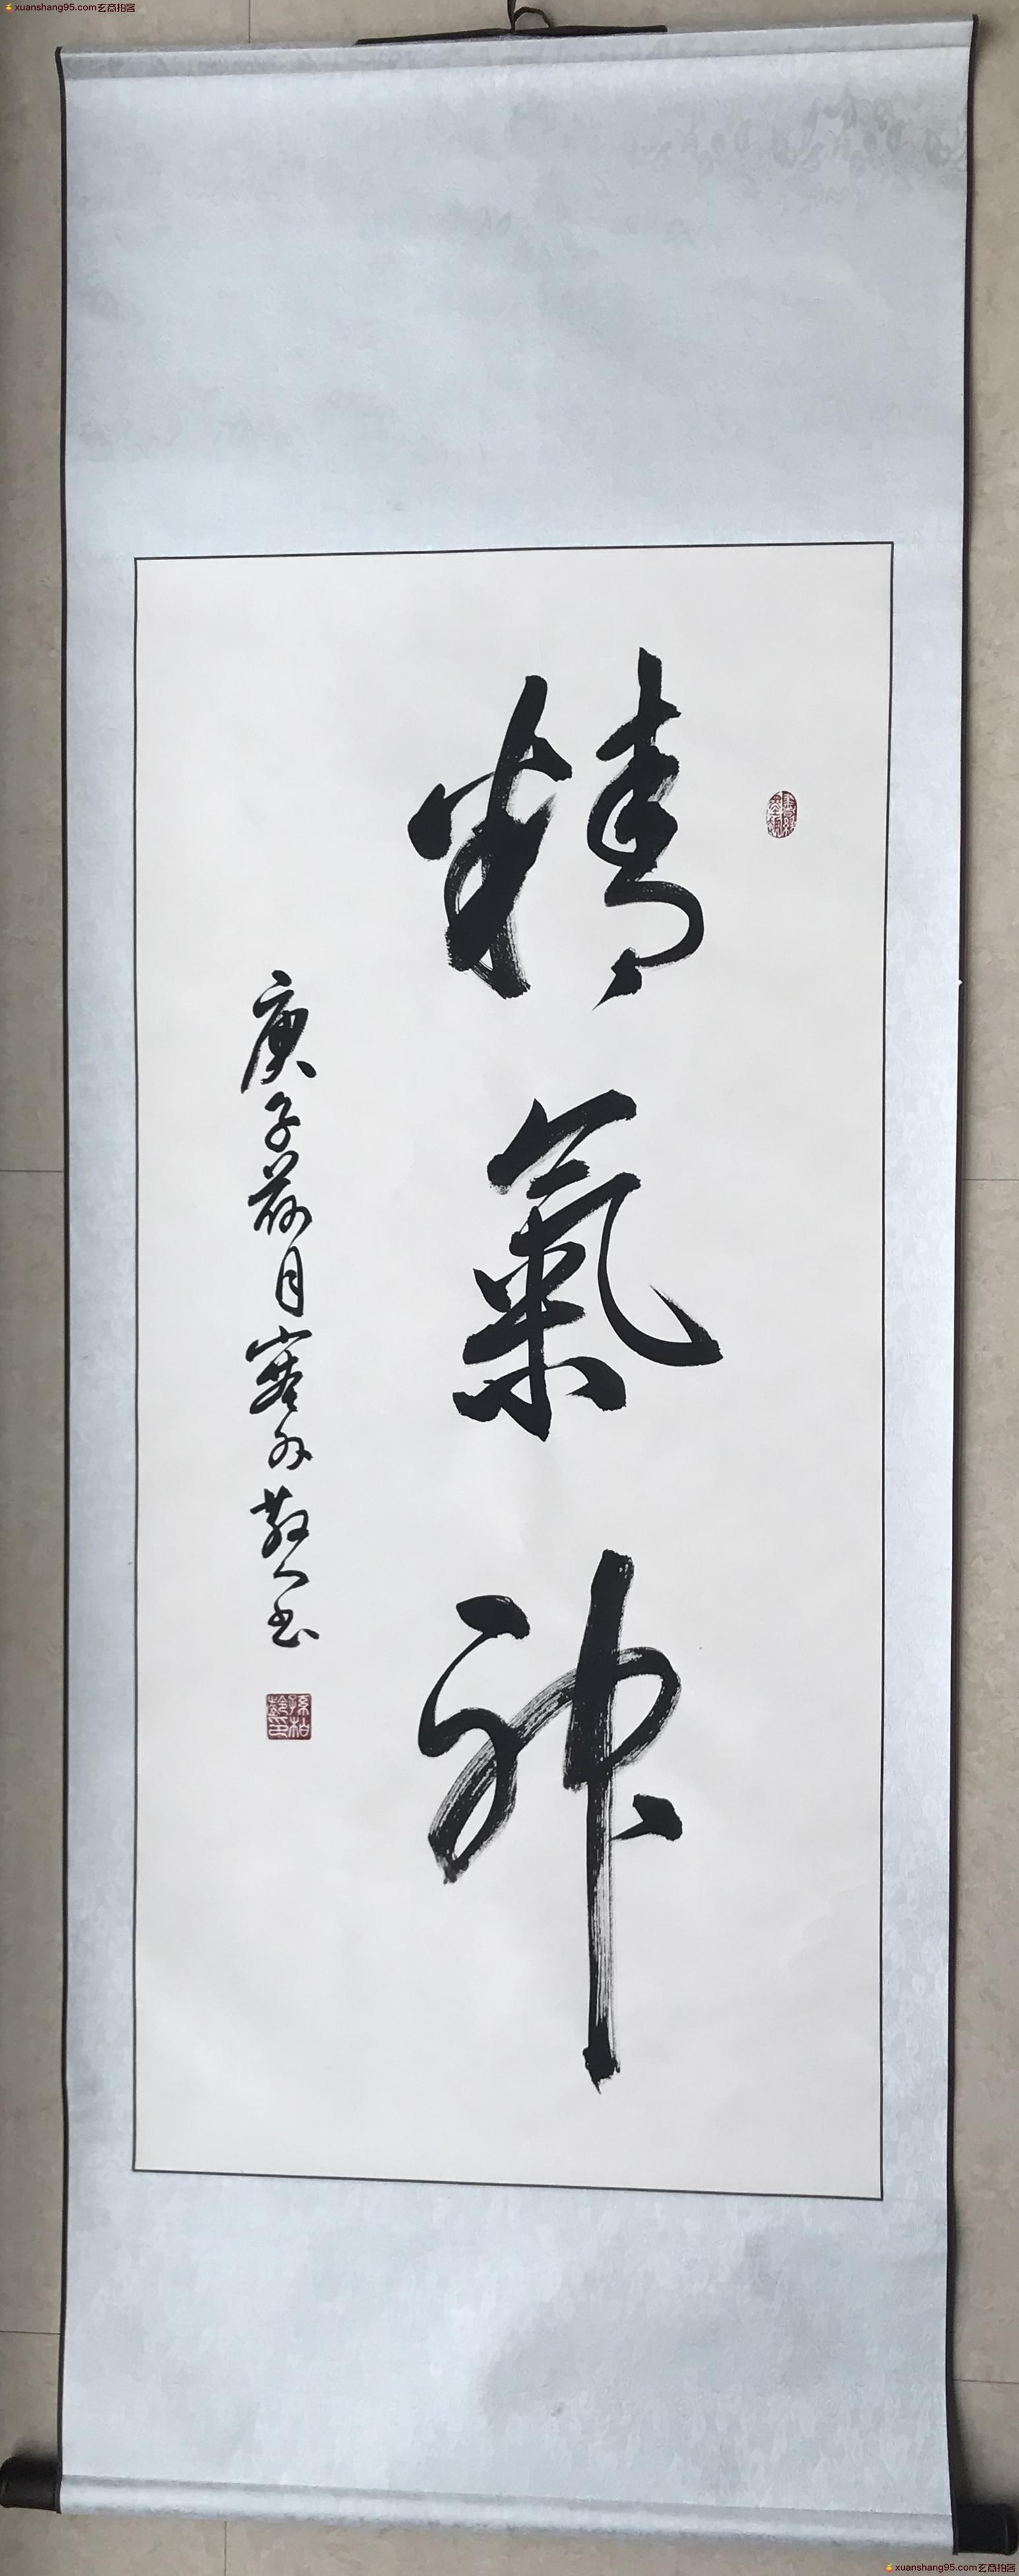 xuanshang95.com玄商拍客
精氣神
庚子荷月寒外散人书
xuanshang95.com玄商拍客